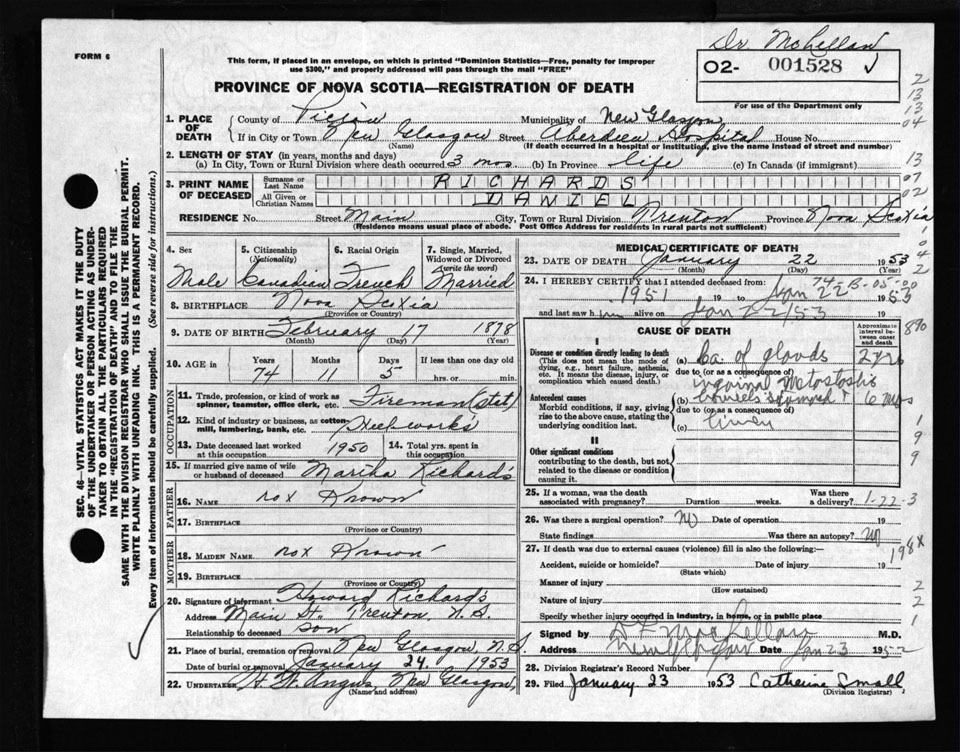 Dr. McLellan
FORM 6
This form, if placed in an envelope, on which is printed "Dominion Statistics—Free, penalty for improper
use $300," and properly addressed will pass through the mail "FREE"
O2- 001528
PROVINCE OF NOVA SCOTIA—REGISTRATION OF DEATH
For use of the Department only
1. PLACE OF DEATH
County of Pictou Municipality of New Glasgow
If in City or Town New Glasgow Street Aberdeen Hospital House No.
(Name) (If death occurred in a hospital or institution, give the name instead of street and number)
2. LENGTH OF STAY (in years, months and days)
(a) In City, Town or Rural Division where death occurred 3 mos (b) In Province life (c) In Canada (if immigrant)
3. PRINT NAME OF DECEASED
Surname or Last Name RICHARDS
All Given or Christian Names DANIEL
RESIDENCE No. Street Main City, Town or Rural Division Trenton Province Nova Scotia
(Residence means usual place of abode. Post Office Address for residents in rural parts not sufficient)
4. Sex 5. Citizenship (Nationality) 6. Racial Origin 7. Single, Married, Widowed or Divorced (write the word)
Male Canadian French Married
8. BIRTHPLACE Nova Scotia
(Province or Country)
9. DATE OF BIRTH February 17 1878
(Month) (Day) (Year)
10. AGE in Years Months Days If less than one day old
74 11 5 hrs. or min.
OCCUPATION
11. Trade, profession, or kind of work as spinner, teamster, office clerk, etc. Fireman (stat)
12. Kind of industry or business, as cotton-mill, lumbering, bank, etc. Steel works
13. Date deceased last worked at this occupation 1950 14. Total yrs. spent in this occupation
15. If married give name of wife or husband of deceased Martha Richards
FATHER
16. NAME not Known
17. BIRTHPLACE
(Province or Country)
MOTHER
18. MAIDEN NAME not Known
19. BIRTHPLACE
(Province or Country)
20. Signature of informant Howard Richards
Address Main St. Trenton, N.S.
Relationship to deceased son
21. Place of burial, cremation or removal New Glasgow, N.S.
Date of burial or removal January 24, 1953
22. UNDERTAKER H.W. Angus New Glasgow,
(Name and address)
MEDICAL CERTIFICATE OF DEATH
23. DATE OF DEATH January 22 1953
(Month) (Day)
24. I HEREBY CERTIFY that I attended deceased from:
74-B-05-00
1951 19 to Jan 22 1953
and last saw him alive on Jan 22/53
CAUSE OF DEATH
Approximate interval between onset and death
I
Disease or condition directly leading to death
(This does not mean the mode of dying, e.g., heart failure, asthenia, etc. It means the disease, injury, or complication which caused death.)
(a) Ca. of glands
due to (or as a consequence of)
inguinal Metastasis
Antecedent causes
Morbid conditions, if any, giving rise to the above cause, stating the underlying condition last.
(b) bowels 6 mos
due to (or as a consequence of)
(c)
II
Other significant conditions
contributing to the death, but not related to the disease or condition causing it.
25. If a woman, was the death associated with pregnancy? Duration weeks. Was there a delivery?
1-22-3
26. Was there a surgical operation? no Date of operation 19
State findings Was there an autopsy? no
198X
27. If death was due to external causes (violence) fill in also the following:—
Accident, suicide or homicide? Date of injury 19
(State which)
Manner of injury
(How sustained)
Nature of injury
Specify whether injury occurred in industry, in home, or in public place
Signed by MacLellan M.D.
Address New Glasgow Date Jan 23 1952
28. Division Registrar's Record Number
29. Filed January 23 1953 Catherine Small
(Division Registrar)
SEC. 46—VITAL STATISTICS ACT MAKES IT THE DUTY
OF THE UNDERTAKER OR PERSON ACTING AS UNDER-
TAKER TO OBTAIN ALL THE PARTICULARS REQUIRED
IN THE "REGISTRATION OF DEATH" AND TO FILE THE
SAME WITH THE DIVISION REGISTRAR WHO SHALL ISSUE THE BURIAL PERMIT.
WRITE PLAINLY WITH UNFADING INK. THIS IS A PERMANENT RECORD.
Every item of information should be carefully supplied. (See reverse side for instructions.)
2
13
13
04
13
07
02
1
0
4
2
890
1
9
9
2
2
1